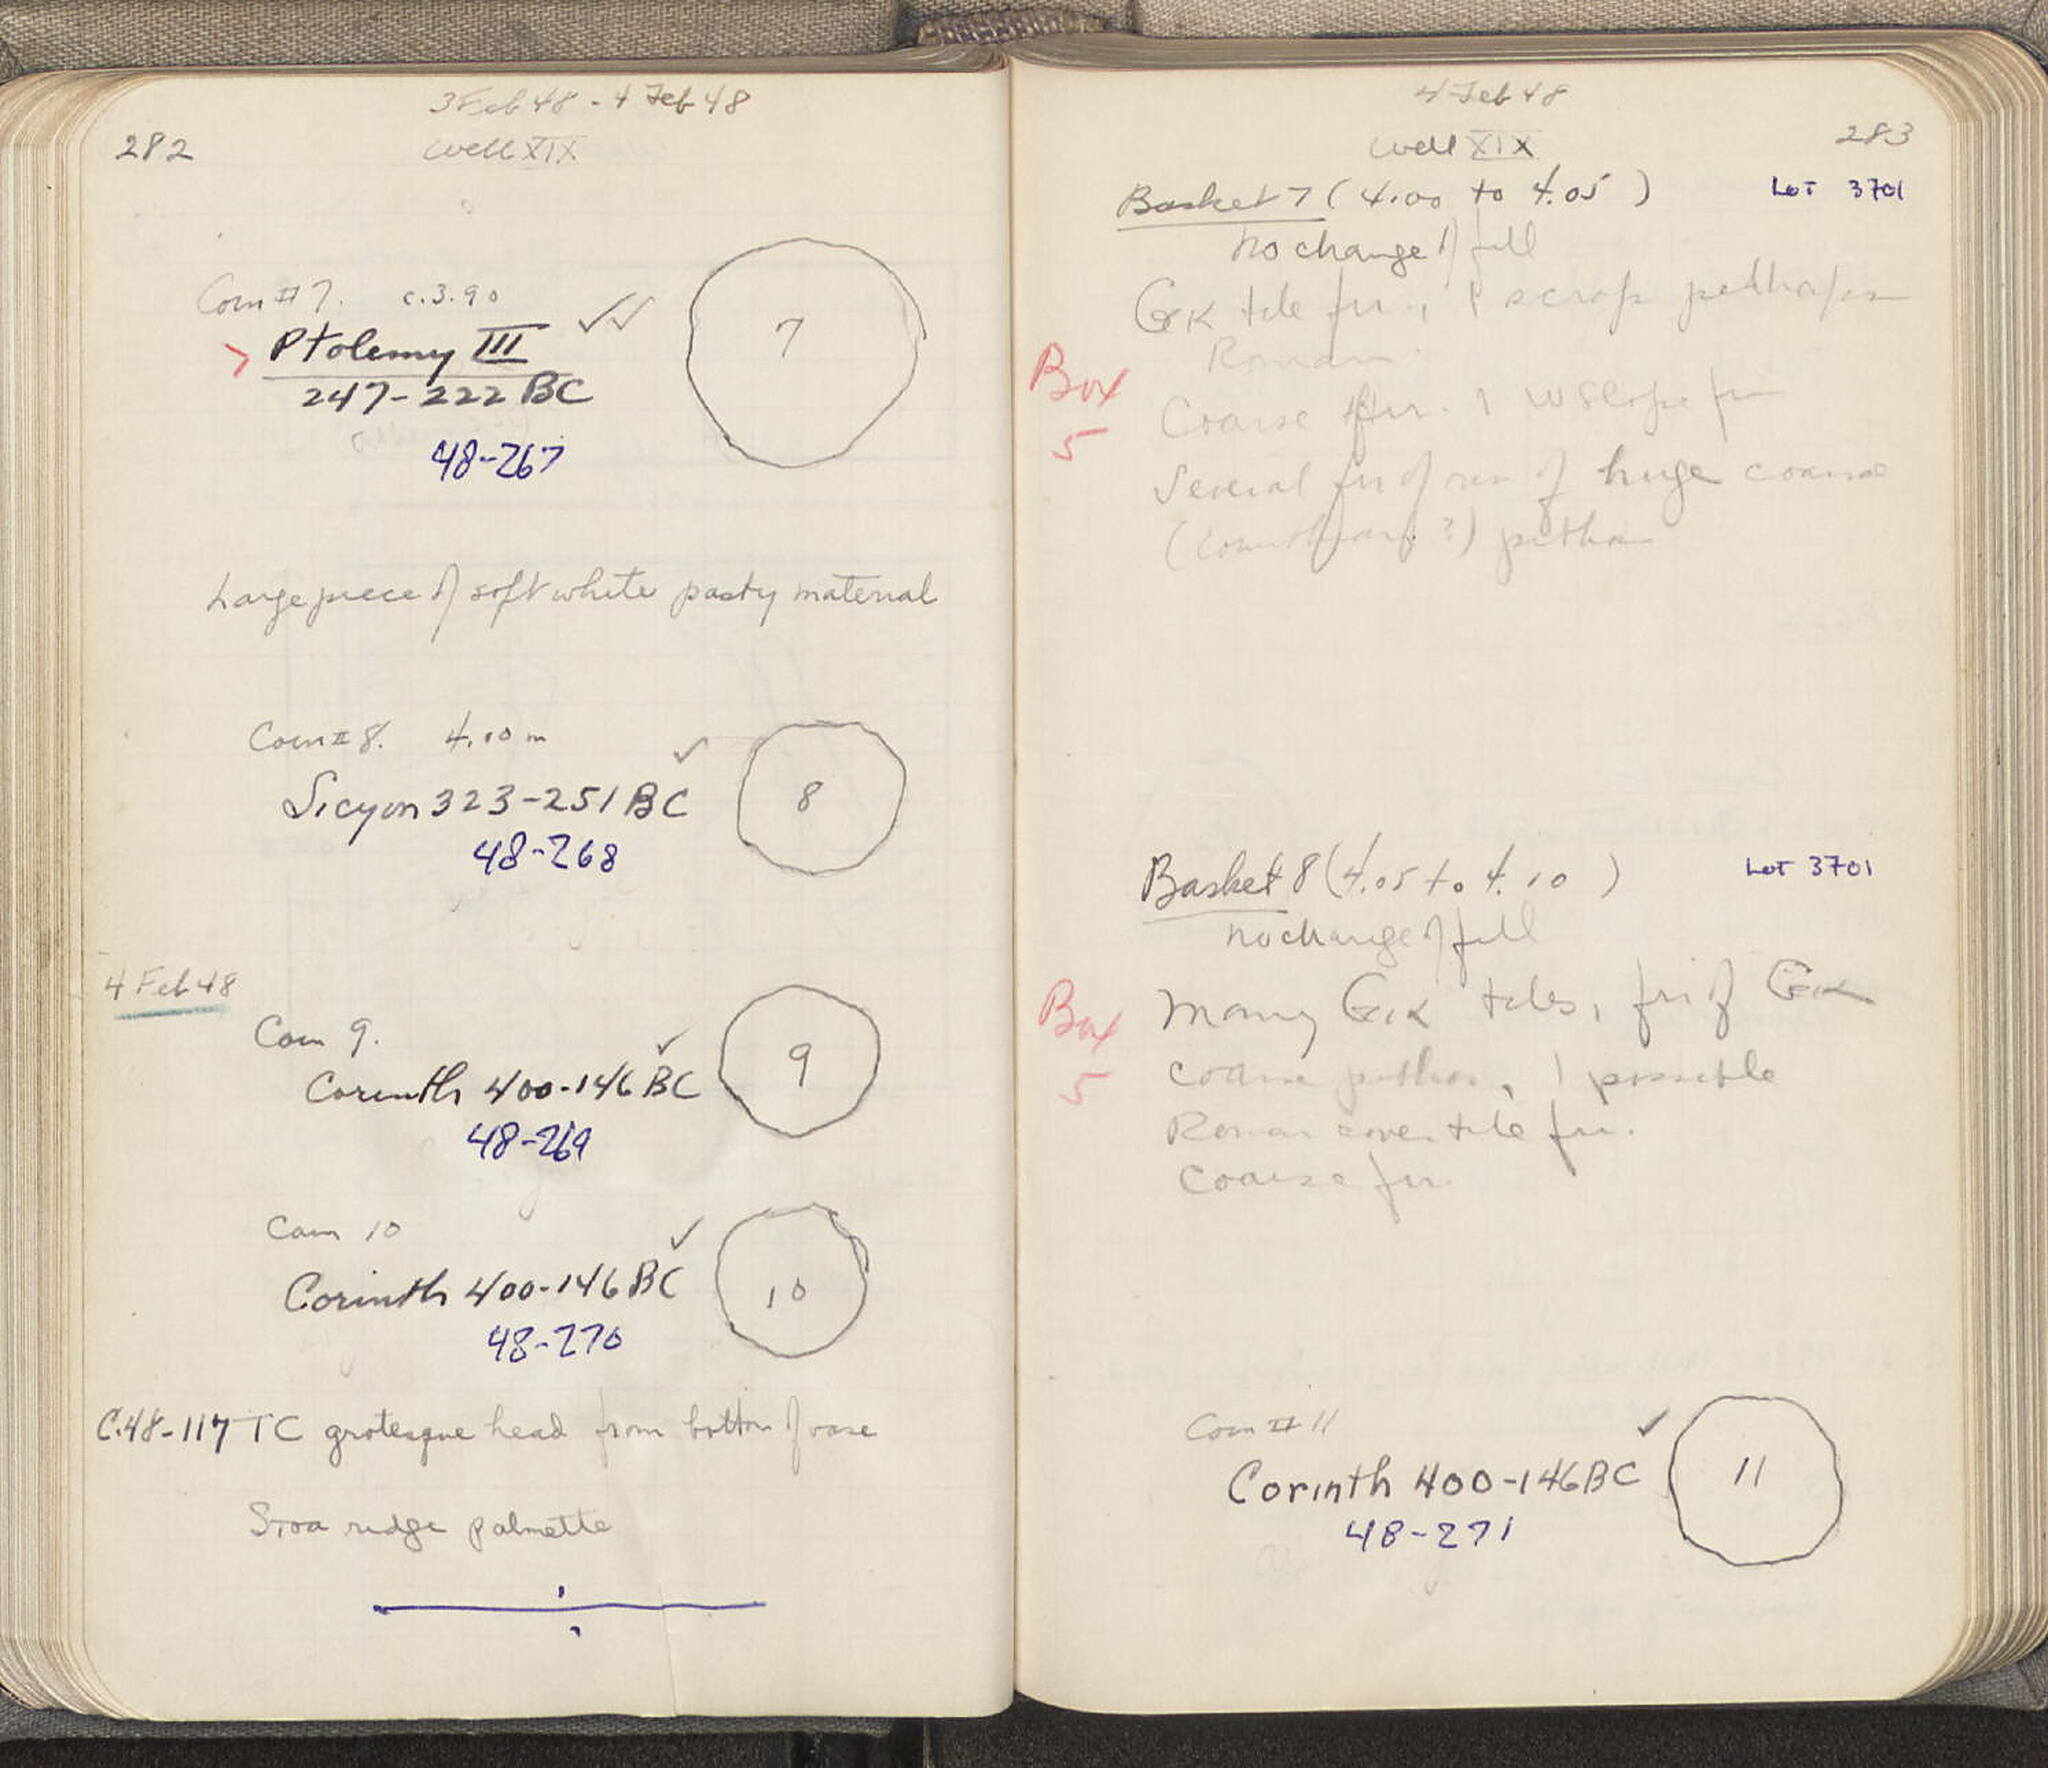 3 Feb 48 - 4 Feb 48
282
Well XIX
Coin # 7. c. 3.90
7
Ptolemy III
247-222 BC
48-267
Large piece of soft white pasty material
Coin # 8. 4.10 m
8
Sicyon 323-251 BC
48-268
4 Feb 48
Coin 9.
9
Corinth 400-146 BC
48-269
Coin 10
10
Corinth 400-146 BC
48-270
C.48-117 TC grotesque head from bottom of vase
Stoa ridge palmette
4 Feb 48
283
Well XIX
Basket 7 (4.00 to 4.05)
Lot 3701
no change of fill
Gk tile frr., 1 scrap perhaps
Roman.
Box
5
Coarse frr. 1 W Slope fr
Several frr of rim of huge coarse
pithos
Basket 8 (4.05 to 4.10)
Lot 3701
no change of fill
Box
5
Many Gk tiles, frr of Gk
coarse pithos, 1 possible
Roman cover tile fr.
Coarse frr.
Coin # 11
11
Corinth 400-146 BC
48-271